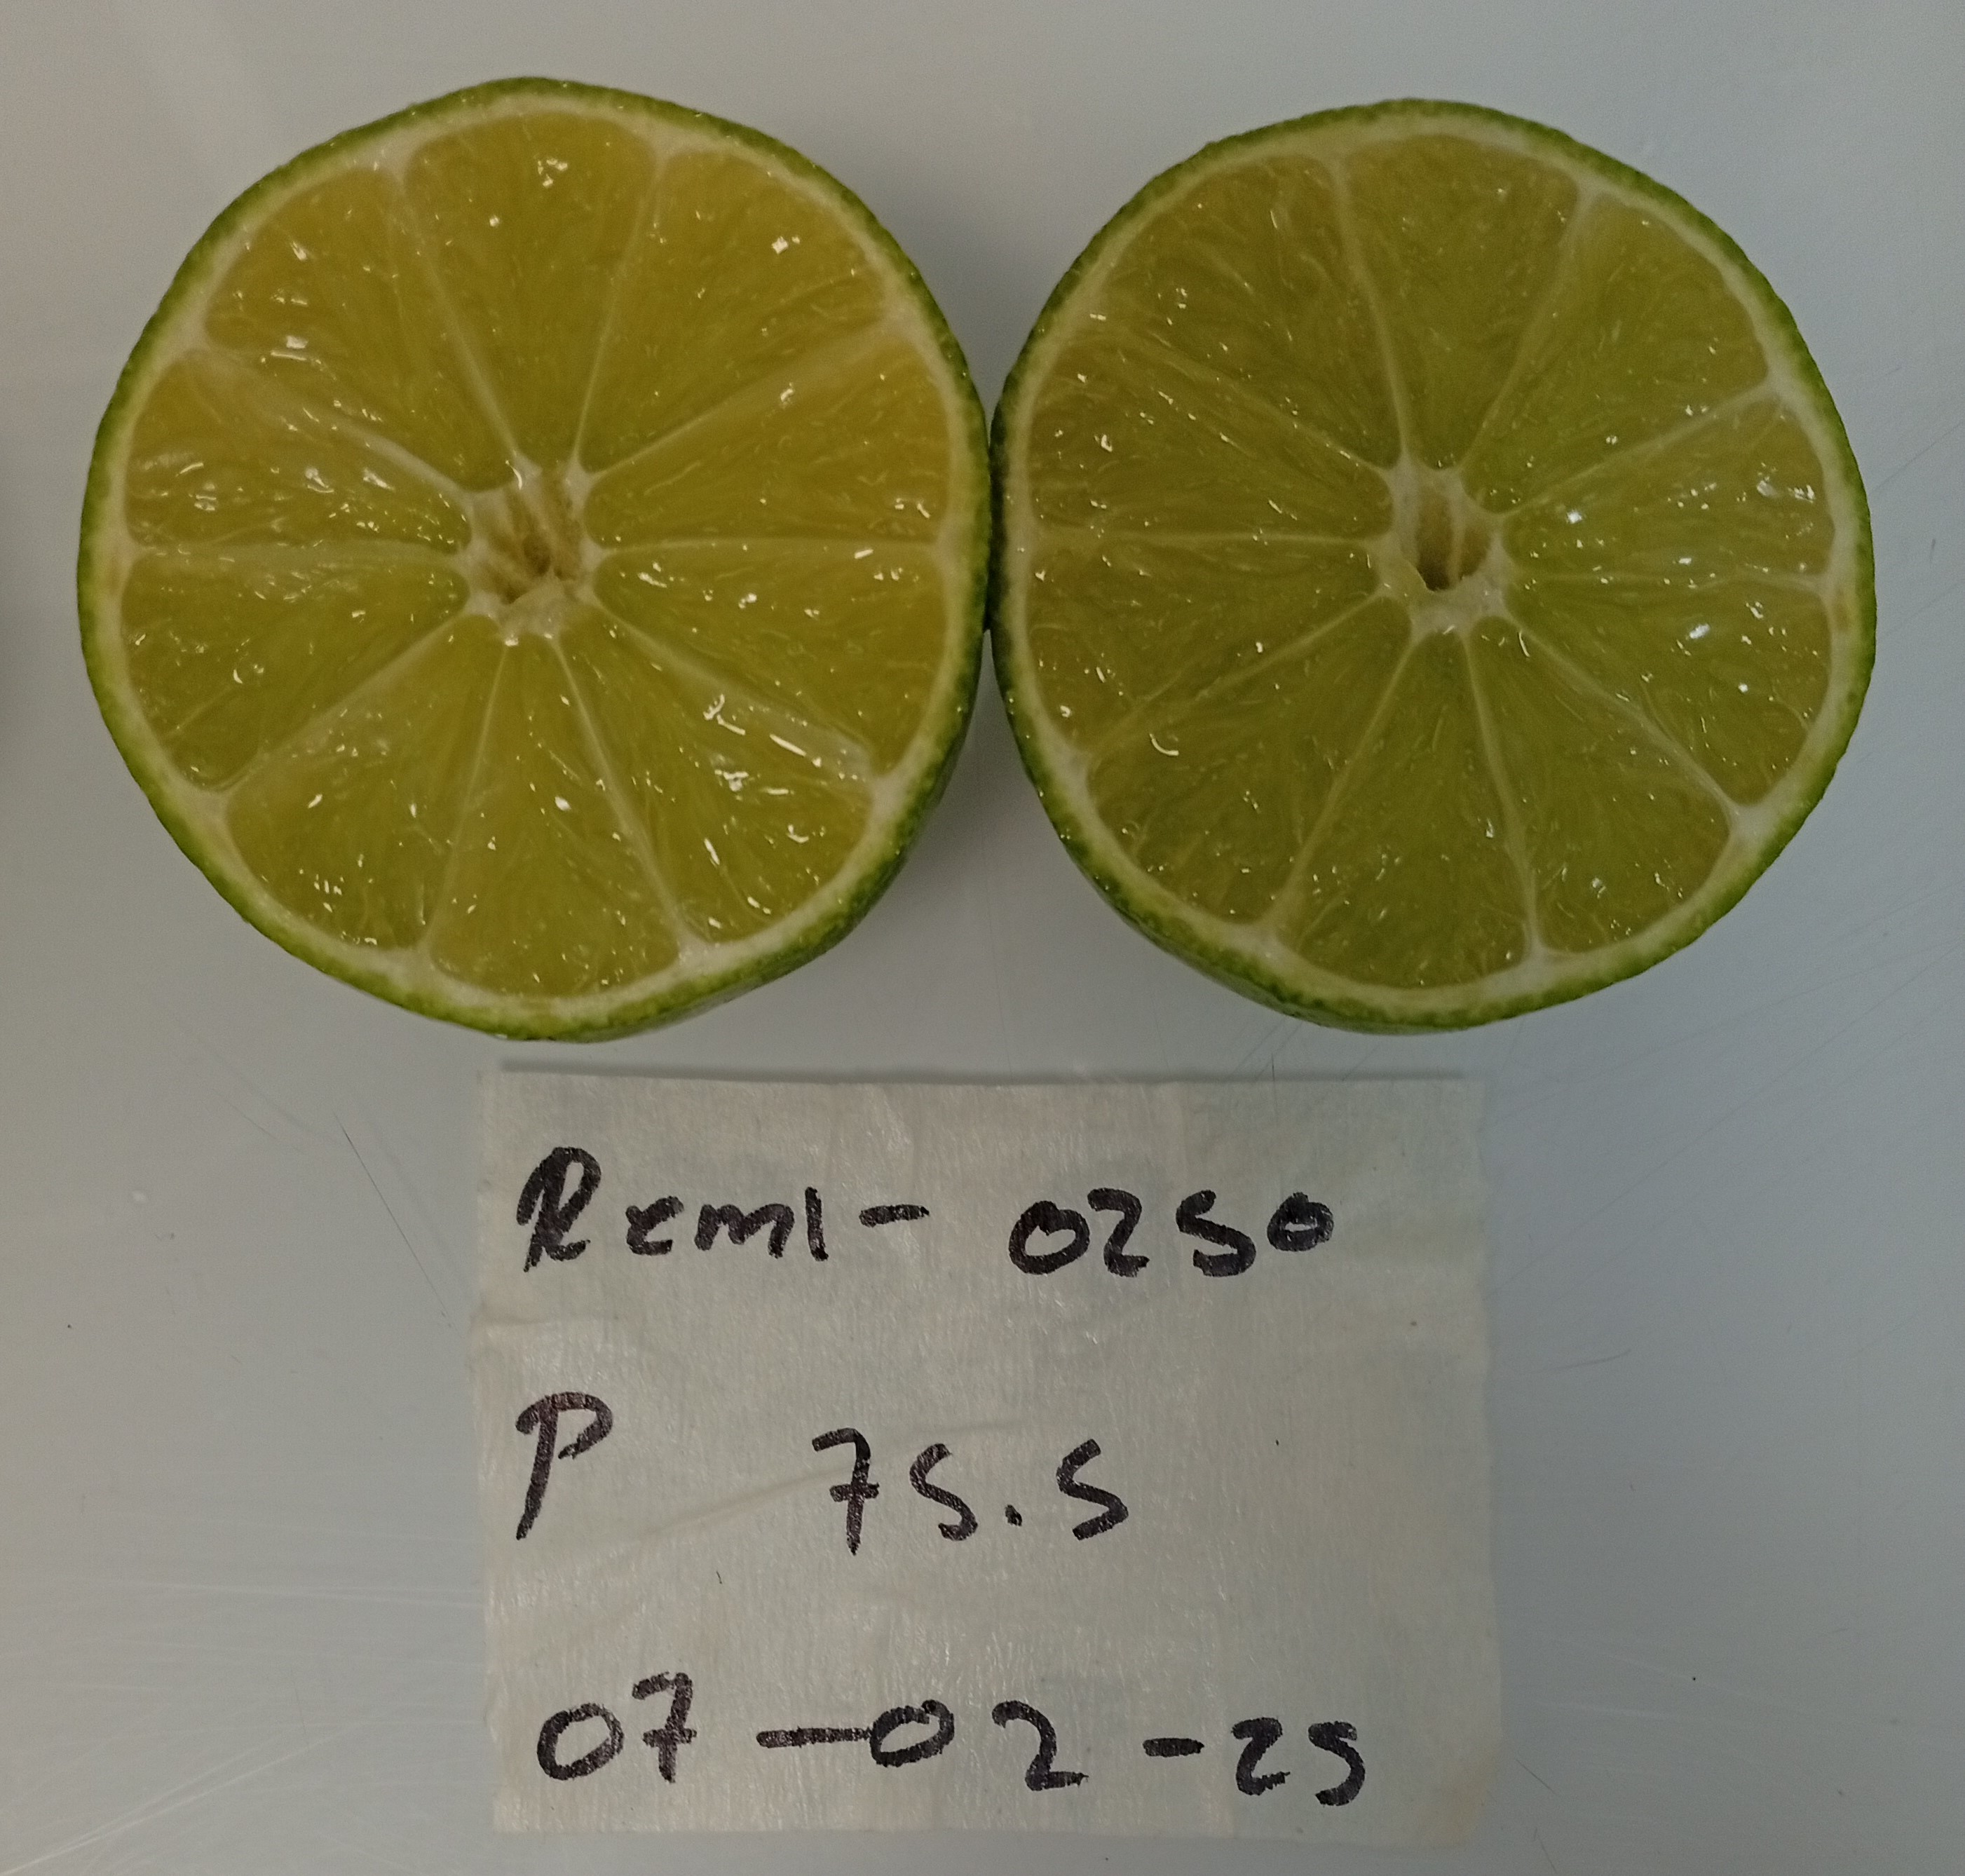 Rcml- 0250
P 75.5
07-02-25